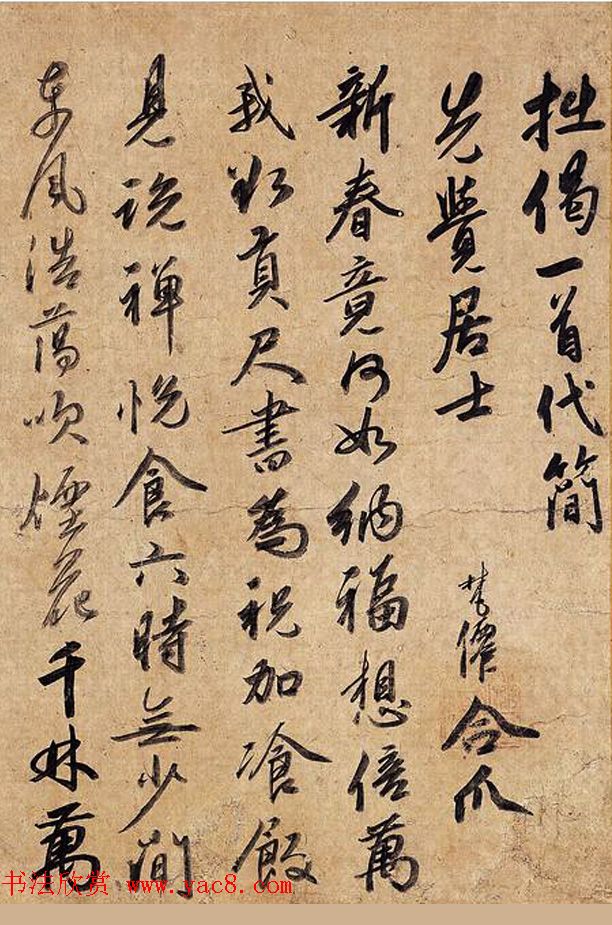 拙偈一首代簡
先覺居士
梵僊合爪
新春竟何如納福想倍萬
我貢尺書為祝加飡飯
見說禪悅食六時無少間
東風浩蕩吹煙花千林萬
书法欣赏 www.yac8.com